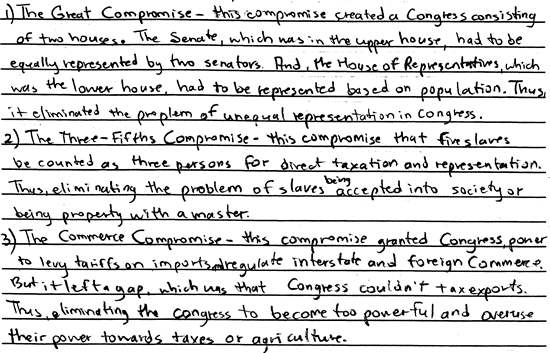 1) The Great Compromise - this compromise created a Congress consisting
of two houses. The Senate, which was in the upper house, had to be
equally represented by two senators. And, the House of Representatives, which
was the lower house, had to be represented based on population. Thus,
it eliminated the problem of unequal representation in Congress.
2) The Three-Fifths Compromise - this compromise that five slaves
be counted as three persons for direct taxation and representation.
Thus, eliminating the problem of slaves being accepted into society or
being property with a master.
3) The Commerce Compromise - this compromise granted Congress, power
to levy tariffs on imports and regulate interstate and foreign Commerce.
But it left a gap, which was that Congress couldn't tax exports.
Thus, eliminating the congress to become too powerful and overuse
their power towards taxes or agriculture.